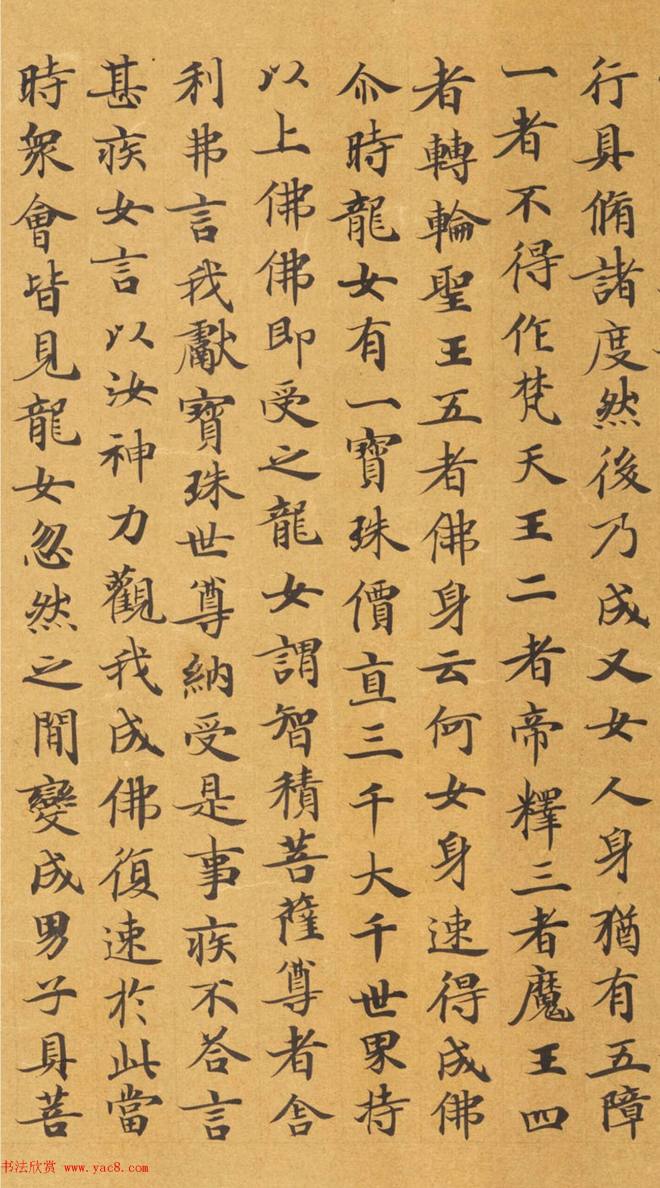 行具脩諸度然後乃成又女人身猶有五障
一者不得作梵天王二者帝釋三者魔王四
者轉輪聖王五者佛身云何女身速得成佛
尒時龍女有一寶珠價直三千大千世界持
以上佛佛即受之龍女謂智積菩薩尊者舍
利弗言我獻寶珠世尊納受是事疾不荅言
甚疾女言以汝神力觀我成佛復速於此當
時衆會皆見龍女忽然之間變成男子具菩
书法欣赏 www.yac8.com